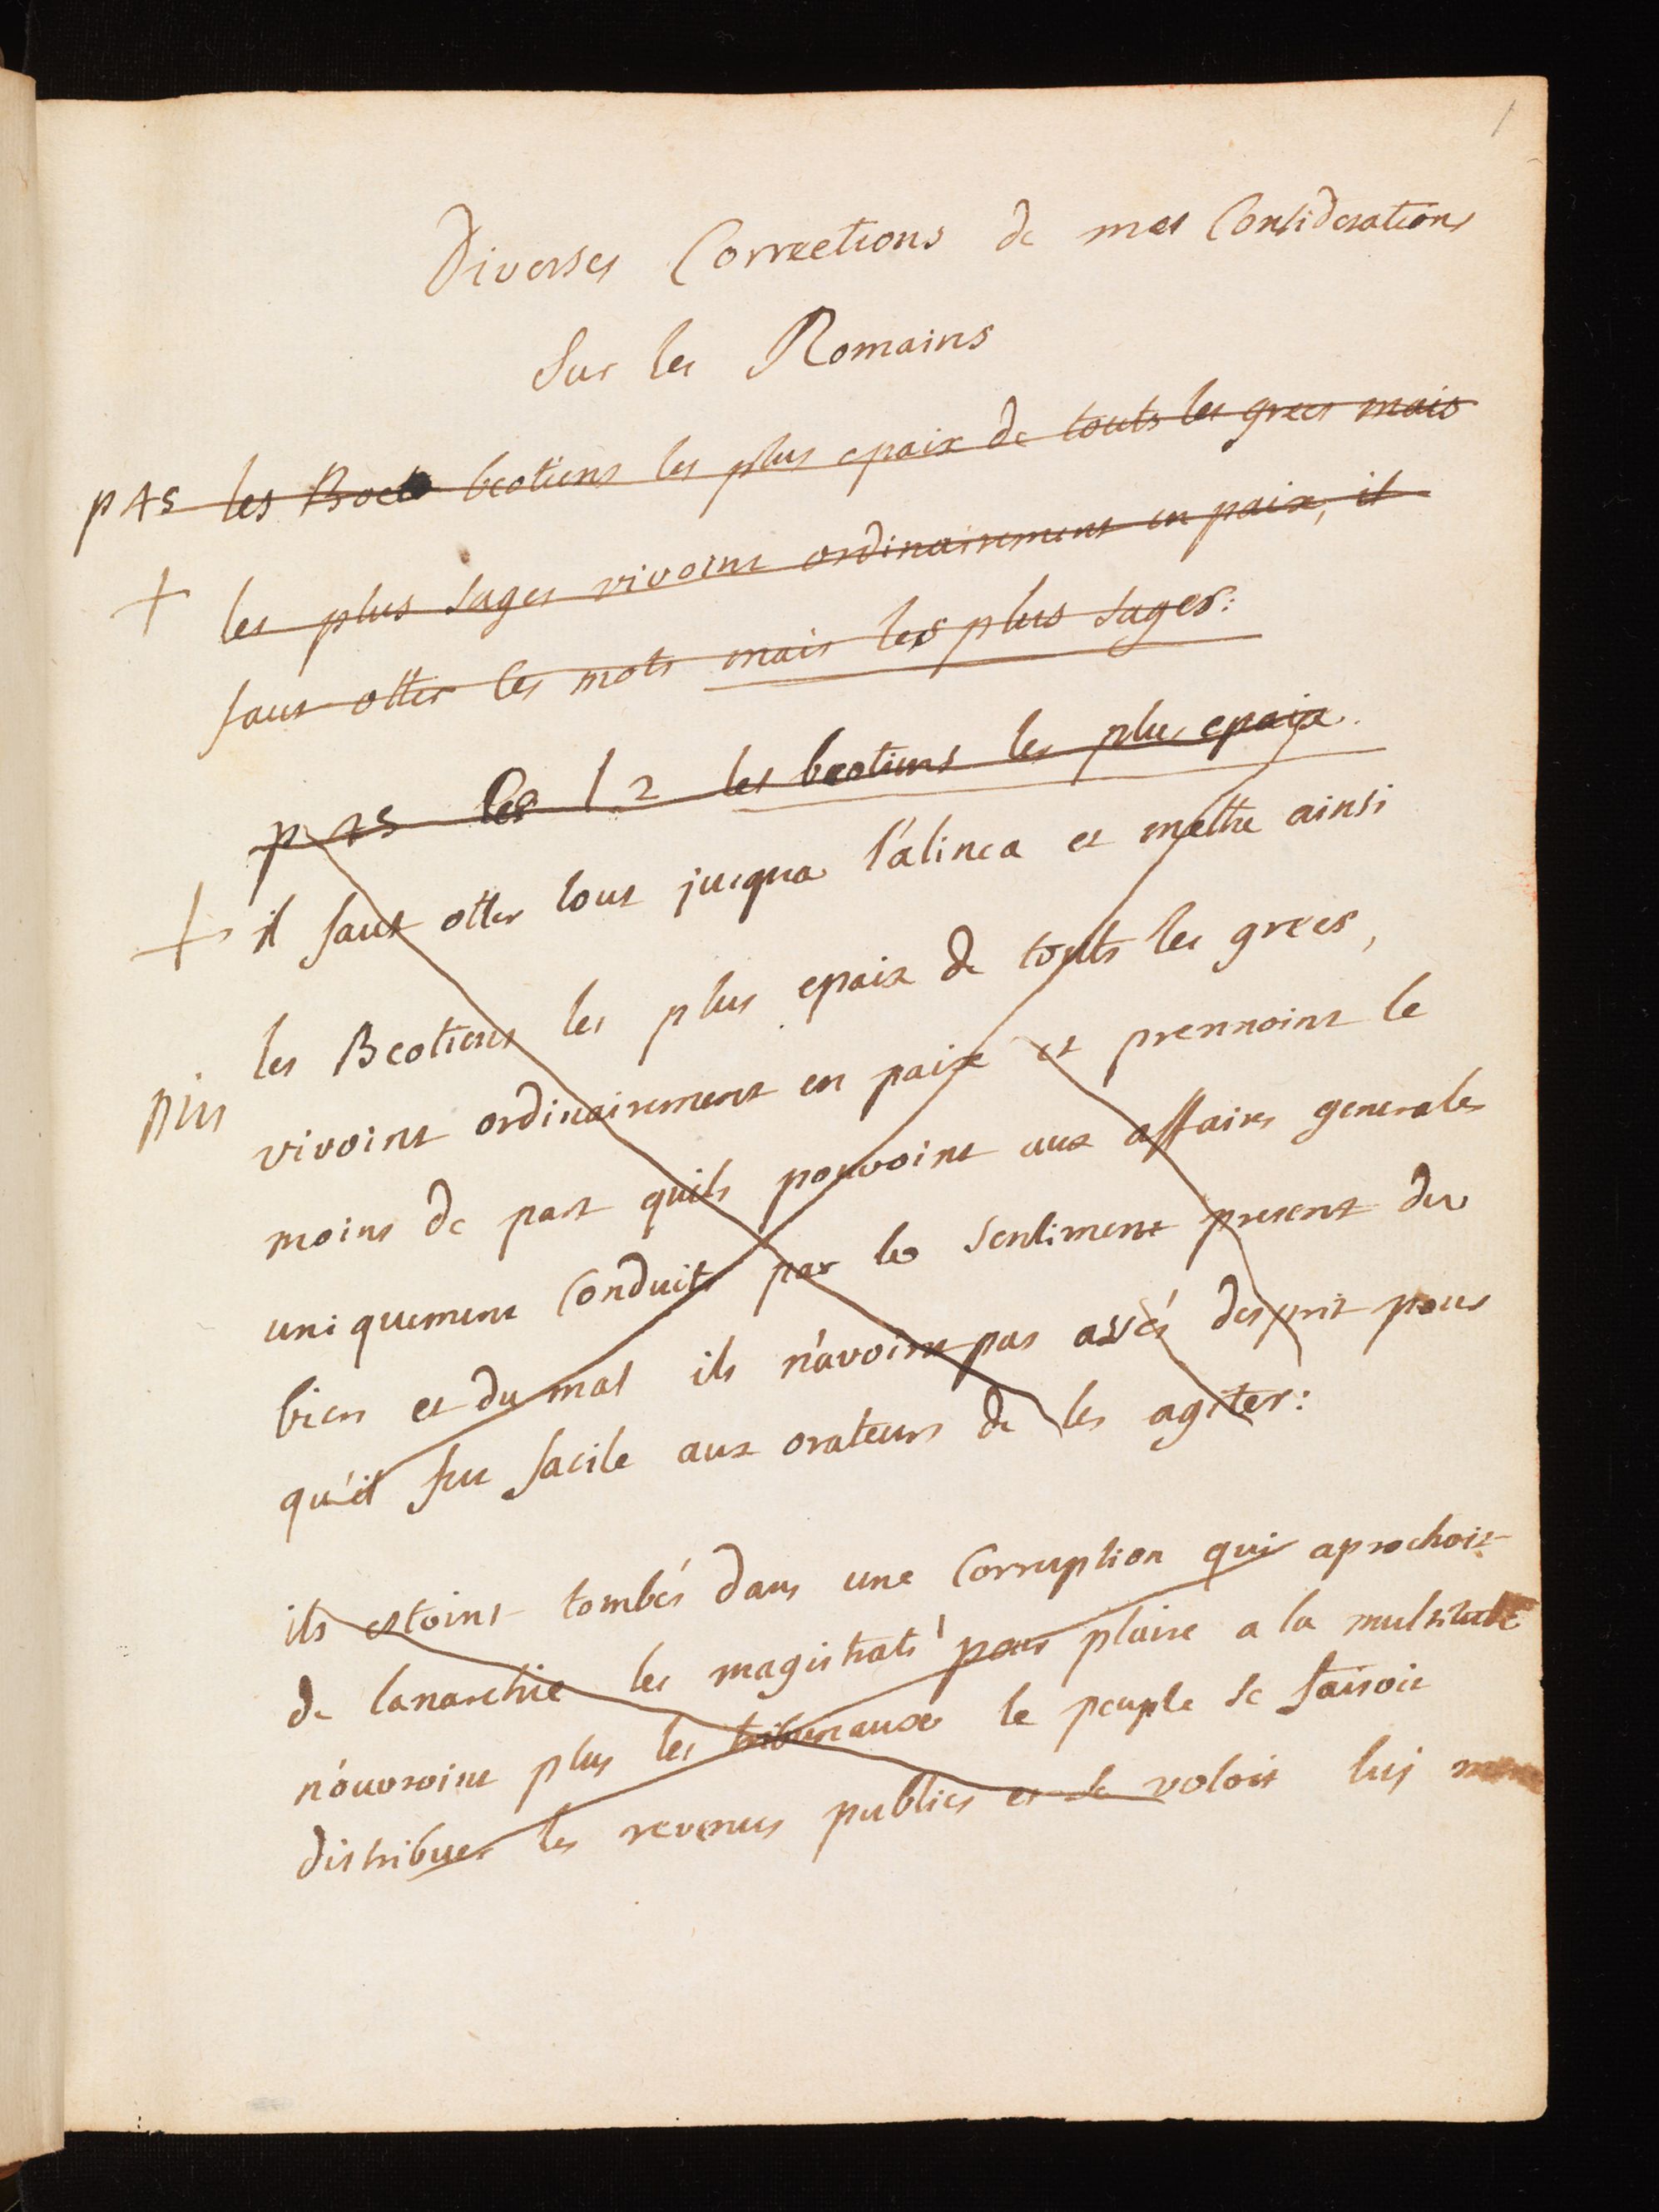 1
Diverses Corrections de mes Considerations
sur les Romains
p 45 les Boet beotiens les plus epaix de touts les grecs mais
+ les plus sages vivoint ordinairement en paix, il
faut otter les mots mais les plus sages:
p 45 les l 2 les beotiens les plus epaix
+ il faut otter tout jusqua l'alinea et mettre ainsi
les Beotiens les plus epaix de touts les grecs,
vivoint ordinairement en paix et prennoint le
moins de part quils pouvoint aux affaires generales
uniquement Conduits par le sentiment present du
bien et du mal ils n'avoint pas assés desprit pour
qu'il fut facile aux orateurs de les agiter:
ils estoint tombés dans une Corruption qui aprochoit
de lanarchie les magistrats pour plaire a la multitude
n'ouvroint plus les tribuneaux le peuple se faisoit
distribuer les revenus publics et se voloit lui meme